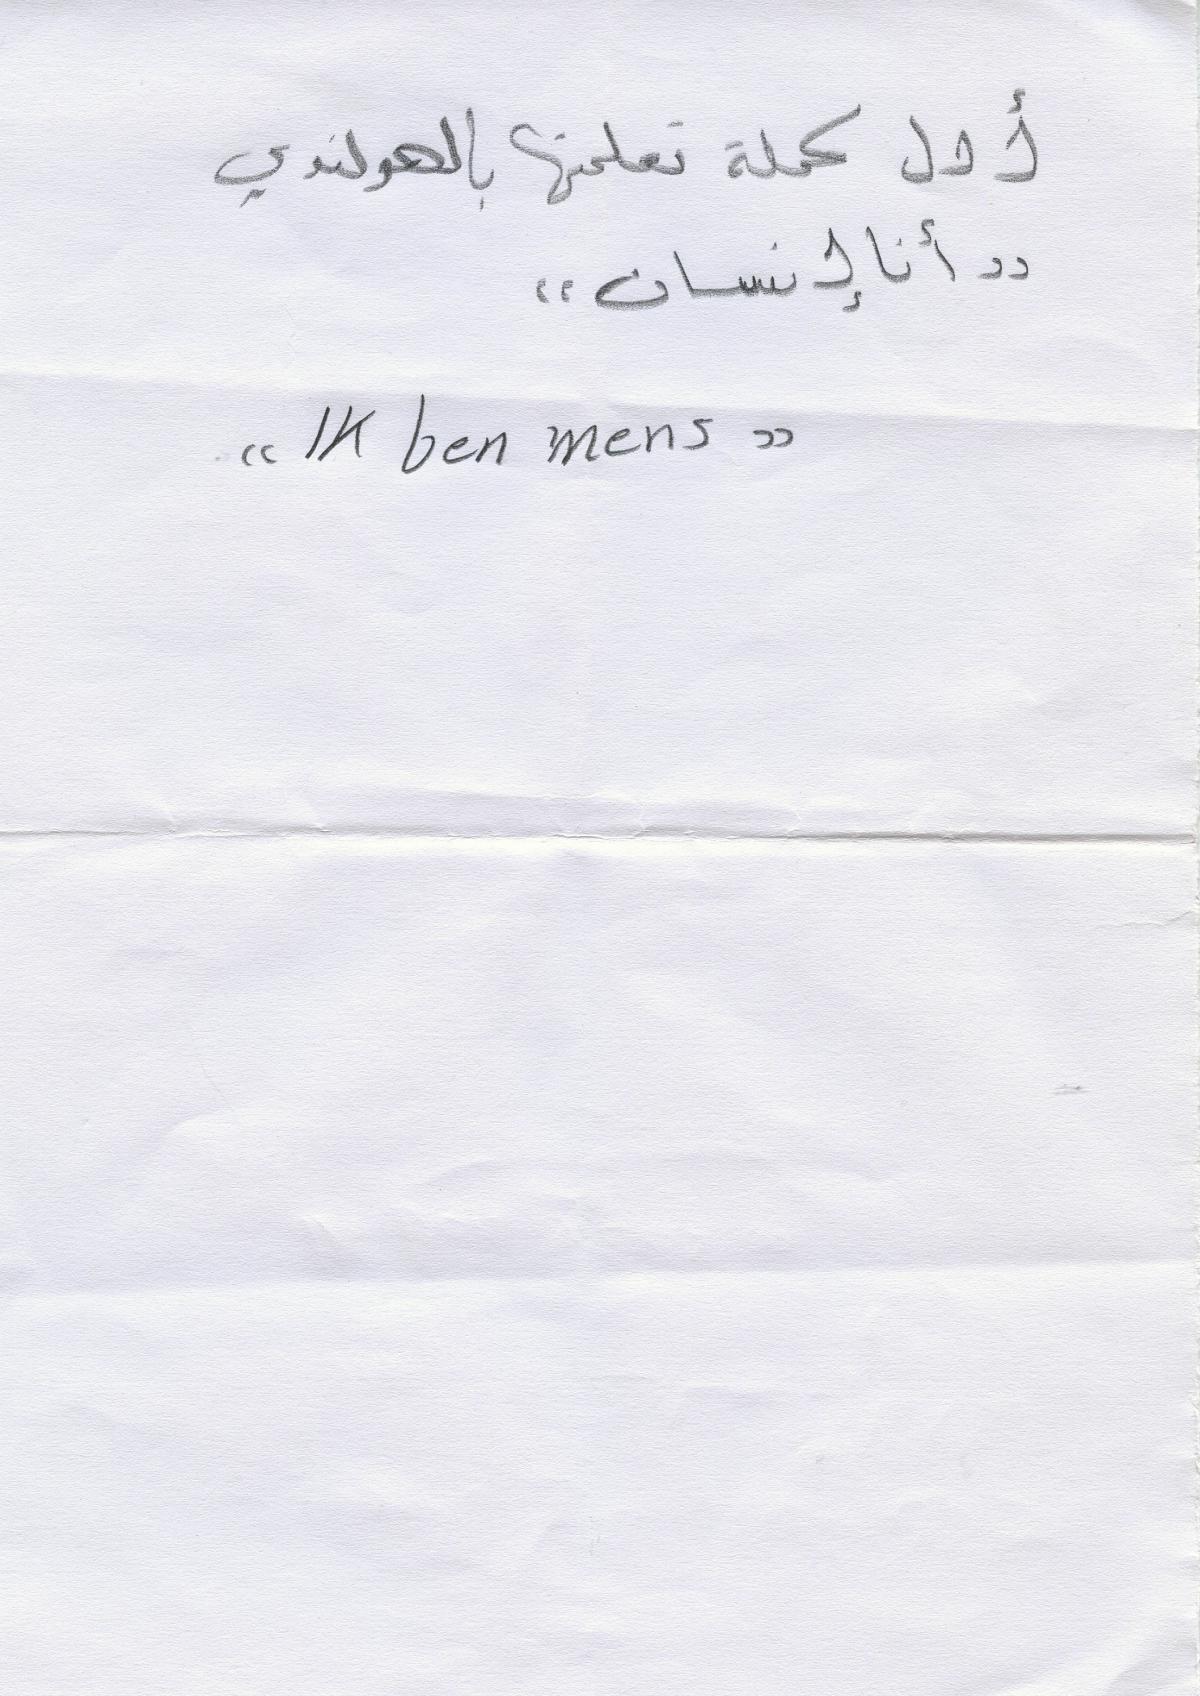 أول كملة تعلمتها بالهولندي
"أنا إنسان"
"Ik ben mens"